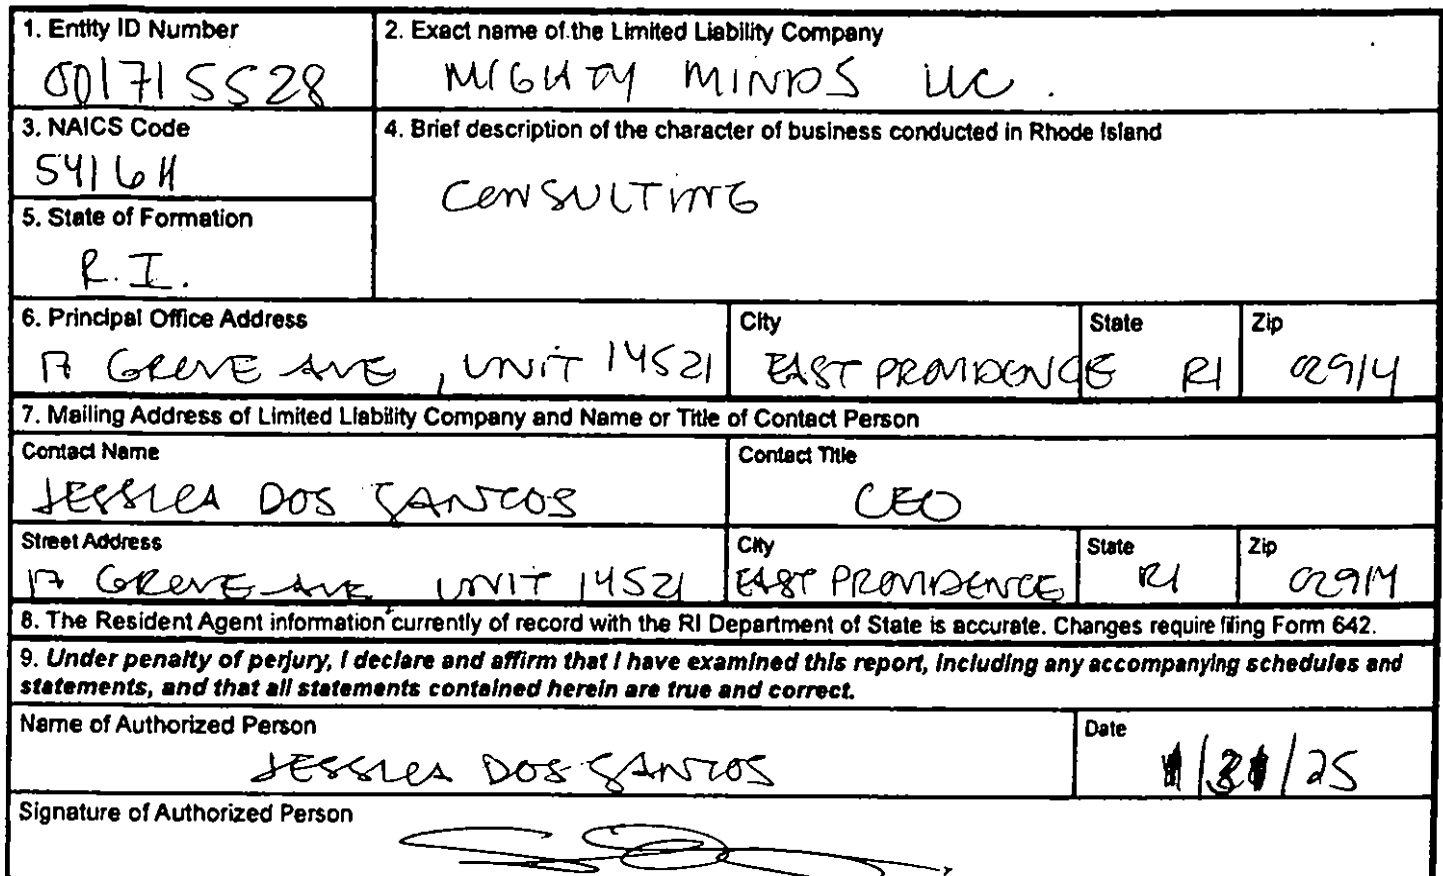 1. Entity ID Number
001715528
2. Exact name of the Limited Liability Company
MIGHTY MINDS LLC.
3. NAICS Code
54161
4. Brief description of the character of business conducted in Rhode Island
CONSULTING
5. State of Formation
R.I.
6. Principal Office Address
17 GROVE AVE, UNIT 14521
City
EAST PROVIDENCE
State
RI
Zip
02914
7. Mailing Address of Limited Liability Company and Name or Title of Contact Person
Contact Name
JESSICA DOS SANTOS
Contact Title
CEO
Street Address
17 GROVE AVE UNIT 14521
City
EAST PROVIDENCE
State
RI
Zip
02914
8. The Resident Agent information currently of record with the RI Department of State is accurate. Changes require filing Form 642.
9. Under penalty of perjury, I declare and affirm that I have examined this report, including any accompanying schedules and
statements, and that all statements contained herein are true and correct.
Name of Authorized Person
JESSICA DOS SANTOS
Date
1/31/25
Signature of Authorized Person